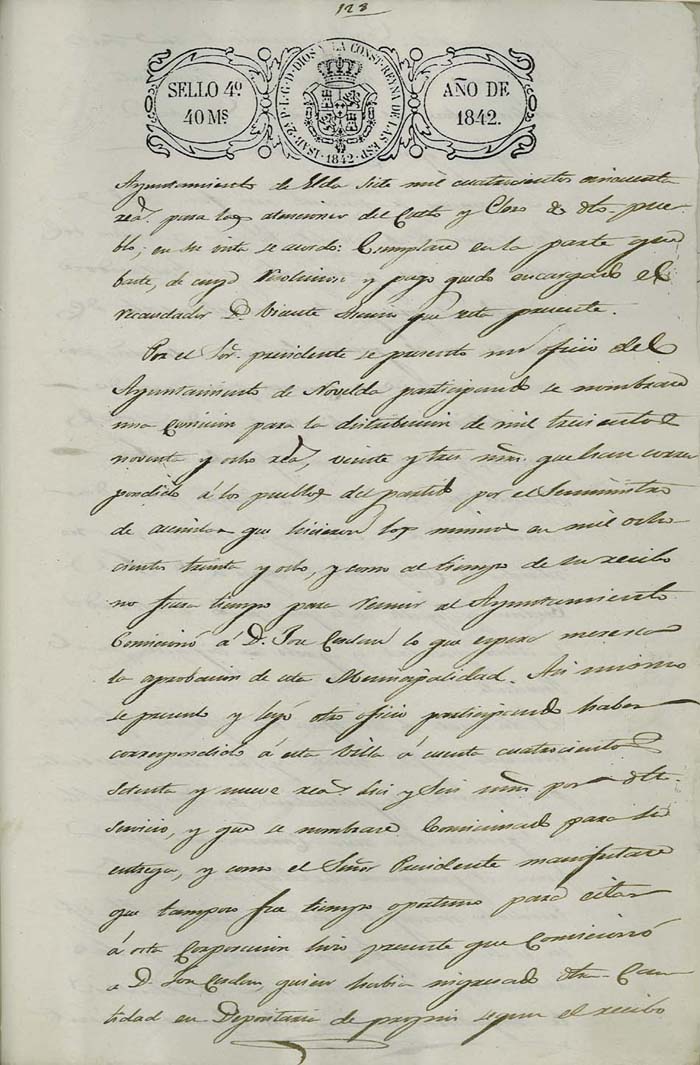 123
SELLO 4º
40 MS
ISAB. 2ª P. L. G. D. DIOS Y LA CONST. REYNA DE LAS ESP.
1842
AÑO DE
1842.
Ayuntamiento de Elda siete mil cuatrocientos cincuenta
rea.s para las atenciones del Culto y Clero de dho. pue-
blo; en su vista se acordó: Cumplase en la parte que
baste, de cuya y pago quedó encargado el
recaudador D. Vicente que está presente.
Por el Sor. presidente se presentó un oficio del
Ayuntamiento de Novelda participando se nombrare
una Comicion para la distribucion de mil trescientos
noventa y ocho rea.s, veinte y tres mrs. que han corres
pondido á los pueblos del partido por el Suministro
de que hicieron los mismos en mil ocho-
cientos treinta y ocho, y como al tiempo de su recibo
no fuese tiempo para reunir al Ayuntamiento
Comicionó á D. Jose lo que espera meresca
la aprobacion de esta Municipalidad. Asi mismo
se presentó y leyó otro oficio participando haber
correspondido á esta Villa á cuenta cuatrocientos
setenta y nueve rea.s diez y seis mrs. por dho.
servicio, y que se nombrare Comicionado para su
entrega, y como el Señor Presidente manifestare
que tampoco fue tiempo oportuno para citar
á esta Corporacion hizo presente que Comicionó
a D. Jose quien habia ingresado dha. Can-
tidad en Depositaria de propios segun el recibo